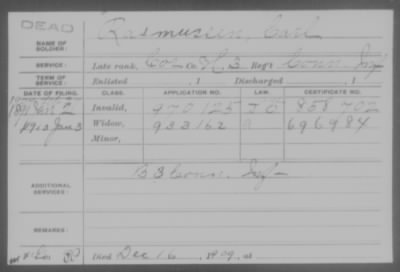 DEAD
NAME OF SOLDIER: Rasmussen, Carl
SERVICE: Late rank, Co. H, 3 Reg't Conn Inf
TERM OF SERVICE: Enlisted , 1 Discharged , 1
DATE OF FILING. CLASS. APPLICATION NO. LAW. CERTIFICATE NO.
Jan 2 Invalid, 970 125 858 702
Jan 3 Widow, 933162 696984
Minor,
ADDITIONAL SERVICES: B 8 Conn. Inf
REMARKS:
Died Dec 16, 1909, at